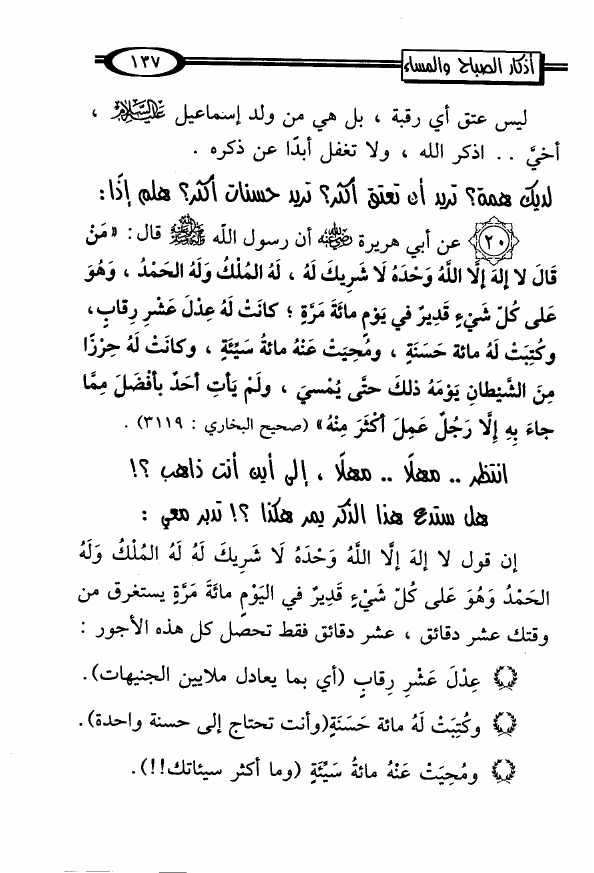 أذكار الصباح والمساء
١٣٧
ليس عتق أي رقبة ، بل هي من ولد إسماعيل عليه السلام ،
أخيَّ . . اذكر الله ، ولا تغفل أبدًا عن ذكره .
لديك همة؟ تريد أن تعتق أكثر؟ تريد حسنات أكثر؟ هلم إذًا:
٢٠ عن أبي هريرة رضي الله عنه أن رسول الله ﷺ قال: «مَنْ
قَالَ لا إِلهَ إِلَّا اللَّهُ وَحْدَهُ لَا شَرِيكَ لَهُ ، لَهُ المُلْكُ وَلَهُ الحَمْدُ ، وَهُوَ
عَلى كُلِّ شَيْءٍ قَدِيرٌ في يَوْمٍ مائَةَ مَرَّةٍ ؛ كانَتْ لَهُ عِدْلَ عَشْرِ رِقابٍ،
وكُتِبَتْ لَهُ مائة حَسَنَةٍ ، ومُحِيَتْ عَنْهُ مائةُ سَيِّئَةٍ ، وكانَتْ لَهُ حِرْزًا
مِنَ الشَّيْطانِ يَوْمَهُ ذلكَ حتَّى يُمْسيَ ، ولَمْ يَأتِ أحَدٌ بأفْضَلَ مِمَّا
جاءَ بِهِ إِلَّا رَجُلٌ عَمِلَ أكْثَرَ مِنْهُ» (صحيح البخاري : ٣١١٩) .
انتظر .. مهلًا .. مهلًا ، إلى أين أنت ذاهب ؟!
هل ستدع هذا الذكر يمر هكذا ؟! تدبر معي :
إن قول لا إلهَ إلَّا اللَّهُ وَحْدَهُ لَا شَرِيكَ لَهُ لَهُ المُلْكُ وَلَهُ
الحَمْدُ وَهُوَ عَلى كُلِّ شَيْءٍ قَدِيرٌ في اليَوْمِ مائَةَ مَرَّةٍ يستغرق من
وقتك عشر دقائق ، عشر دقائق فقط تحصل كل هذه الأجور :
عِدْلَ عَشْرِ رِقابٍ (أي بما يعادل ملايين الجنيهات).
وكُتِبَتْ لَهُ مائة حَسَنَةٍ(وأنت تحتاج إلى حسنة واحدة).
ومُحِيَتْ عَنْهُ مائةُ سَيِّئَةٍ (وما أكثر سيئاتك!!).